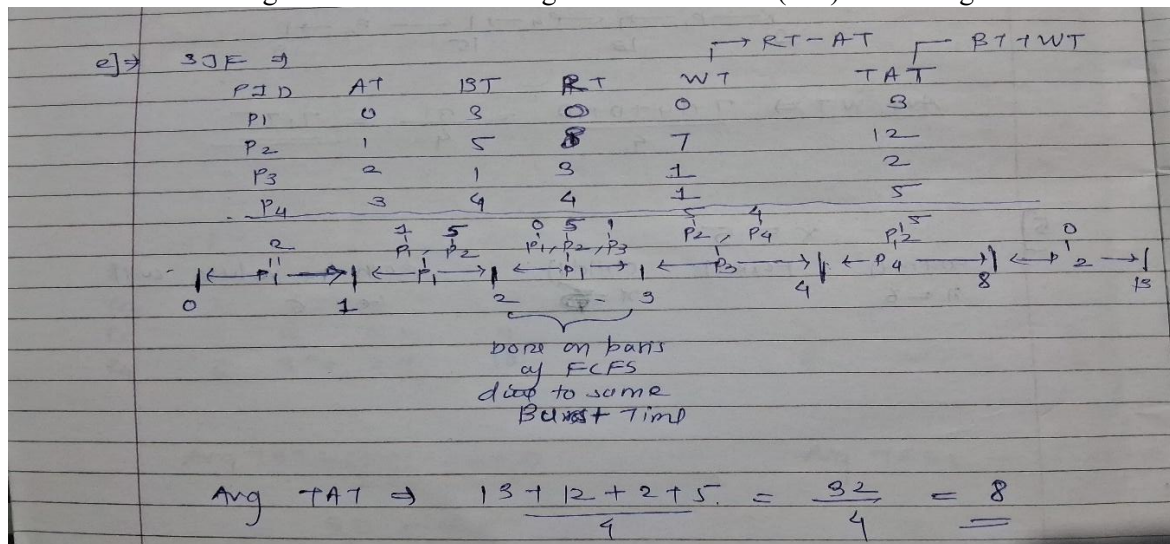 e] ⇒ SJF ⇒
→ RT-AT BT+WT
PID AT BT RT WT TAT
P1 0 3 0 0 3
P2 1 5 8 7 12
P3 2 1 3 1 2
P4 3 4 4 1 5
2 1 5 0 5 1 5 4 5 0
P1, P2 P1, P2, P3 P2, P4 P2
P1 P1 P1 P3 P4 P2
0 1 2 - 3 4 8 13
Done on basis
of FCFS
due to same
Burst Time
Avg TAT ⇒ 13+12+2+5. = 32 = 8
4 4